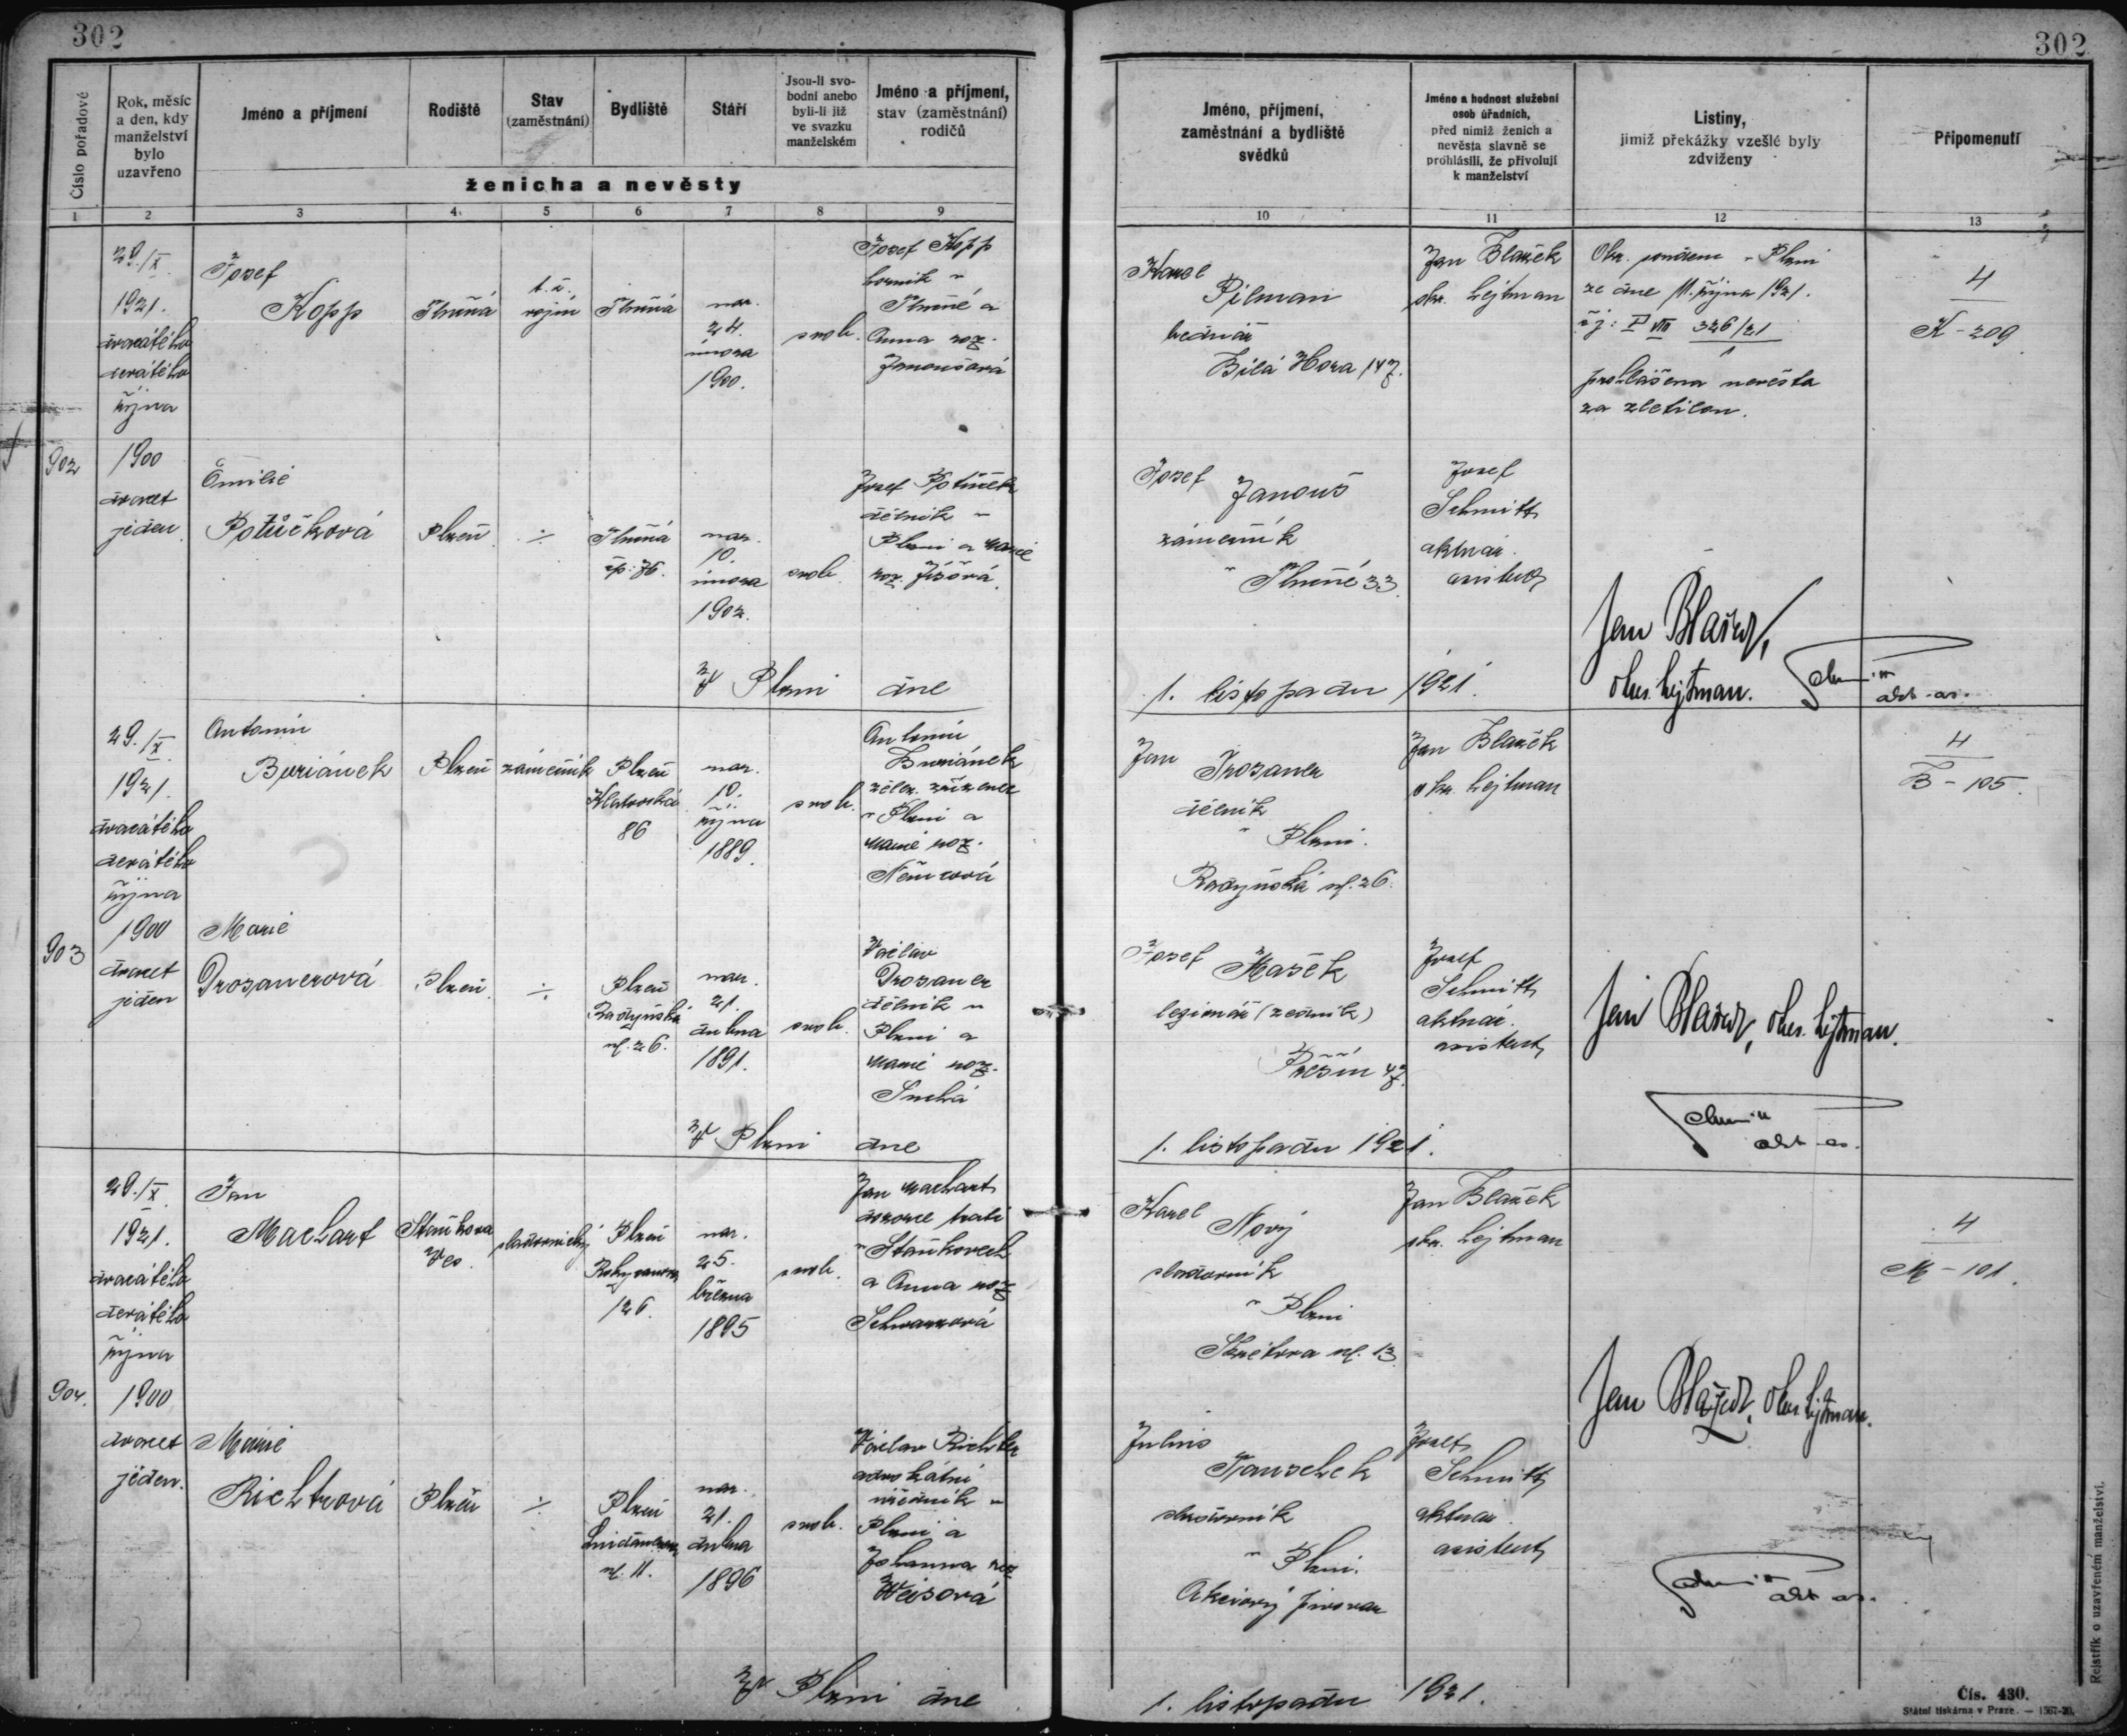 302
302
Číslo pořadové
Rok, měsíc
a den, kdy
manželství
bylo
uzavřeno
Jméno a příjmení
Rodiště
Stav
(zaměstnání)
Bydliště
Stáří
Jsou-li svo-
bodni anebo
byli-li již
ve svazku
manželském
Jméno a příjmení,
stav (zaměstnání)
rodičů
ženicha a nevěsty
Jméno, příjmení,
zaměstnání a bydliště
svědků
Jméno a hodnost služební
osob úřadních,
před nimiž ženich a
nevěsta slavně se
prohlásili, že přivolují
k manželství
Listiny,
jimiž překážky vzešlé byly
zdviženy
Připomenutí
1 2 3 4 5 6 7 8 9
10 11 12 13
902
29./X
1921.
dvacátého
devátého
října
1900
dvacet
jeden
Josef
Kopp
vojín
nar.
24.
února
1900.
svob.
Josef Kopp
horník v
a
Anna roz.
Janoušová
Karel
Pilman
bednář
Bílá Hora 147.
Jan Blažek
okr. hejtman
Okr. soudem v Plzni
ze dne 11. října 1921.
čj: P VIII 326/21
prohlášena nevěsta
za zletilou.
4
K - 209
Emilie
Potůčková
Plzeň
÷
čp: 76.
nar.
10.
února
1902.
svob.
Josef Potůček
dělník v
Plzni a Marie
roz.
Josef
Janouš
zámečník
v 33.
Josef
Schmitt
aktuár.
asistent
V Plzni dne
1. listopadu 1921.
Jan Blažek,
okr. hejtman.
Schmitt
akt. as.
903
29./X.
1921.
dvacátého
devátého
října
1900
dvacet
jeden
Antonín
Buriánek
Plzeň
zámečník
Plzeň
Klatovská
86
nar.
10.
října
1889.
svob.
Antonín
Buriánek
želez. zřízenec
v Plzni a
Marie roz.
Němcová
Jan
Prosaner
dělník
v Plzni.
Radyňská ul. 26.
Jan Blažek
okr. hejtman
4
B - 105.
Marie
Prosanerová
Plzeň
÷
Plzeň
Radyňská
ul. 26.
nar.
21.
dubna
1891.
svob.
Václav
Prosaner
dělník v
Plzni a
Marie roz.
Suchá
Josef
Mašek
legionář (zedník)
47.
Josef
Schmitt
aktuár.
asistent
Jan Blažek, okr. hejtman.
Schmitt
akt. as.
V Plzni dne
1. listopadu 1921.
904.
29./X.
1921.
dvacátého
devátého
října
1900
dvacet
jeden.
Jan
Machart
Staňkova
Ves
sladovnický
Plzeň
126.
nar.
25.
března
1895
svob.
Jan Machart
dozorce trati
v Staňkovech
a Anna roz
Schwarzová
Karel
Nový
sladovník
v Plzni
Škretova ul. 13
Jan Blažek
okr. hejtman
4
M - 101.
Marie
Richtrová
Plzeň
÷
Plzeň
ul. 11.
nar.
21.
dubna
1896
svob.
Václav Richter
advokátní
úředník v
Plzni a
Johanna roz
Weisová
Julius
sladovník
v Plzni.
Akciový pivovar
Josef
Schmitt
aktuár.
asistent
Jan Blažek, okr. hejtman.
Schmitt
akt. as.
V Plzni dne
1. listopadu 1921.
Rejstřík o uzavřeném manželství.
Čís. 430.
Státní tiskárna v Praze. — 1567-20.